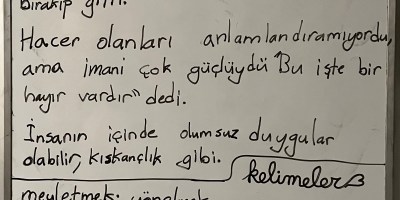 bırakıp gitti.
Hacer olanları anlamlandıramıyordu,
ama imani çok güçlüydü "Bu işte bir
hayır vardır" dedi.
İnsanın içinde olumsuz duygular
olabilir, kıskançlık gibi.
kelimeler
meyletmek: yönelmek